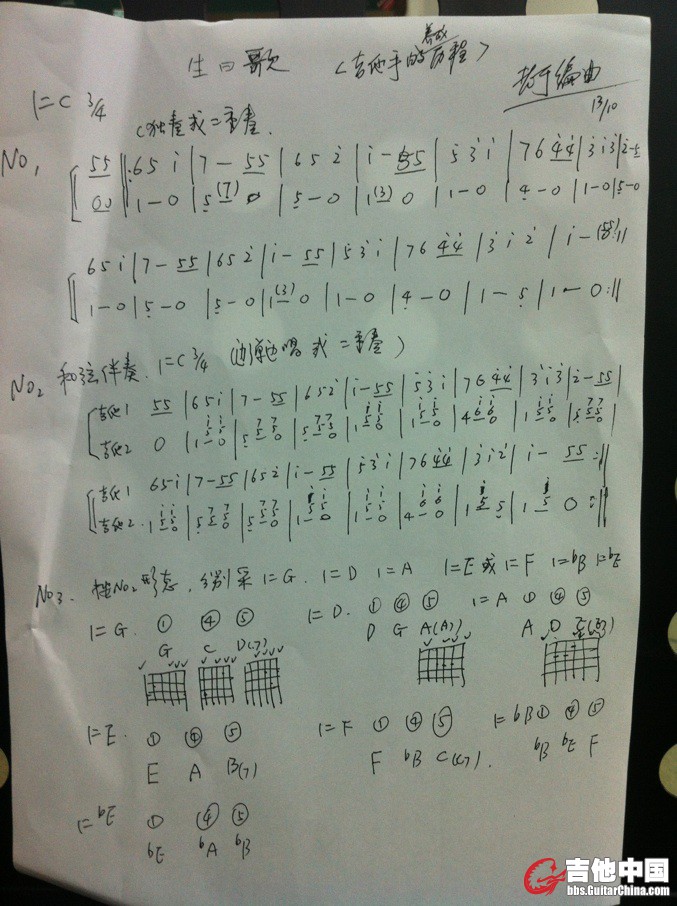 生日歌 (吉他手的养成历程) 编曲
1=C 3/4 13/10
(独奏或二重奏.
No1
55 ‖: 6 5 i | 7 - 55 | 6 5 2̇ | i - 55 | 5 3̇ i | 7 6 4̇4̇ | 3̇ i 3̇ | 2̇ - 5
00 ‖ 1 - 0 | 5̣ (7) 0 | 5̣ - 0 | 1 (3) 0 | 1 - 0 | 4̣ - 0 | 1 - 0 | 5̣ - 0
6 5 i | 7 - 55 | 6 5 2̇ | i - 55 | 5 3̇ i | 7 6 4̇4̇ | 3̇ i 2̇ | i - (55) :‖
1 - 0 | 5̣ - 0 | 5̣ - 0 | 1 (3) 0 | 1 - 0 | 4̣ - 0 | 1 - 5̣ | 1 - 0 :‖
No2 和弦伴奏. 1=C 3/4 (边弹边唱 或 二重奏)
吉他1 55 | 6 5 i | 7 - 55 | 6 5 2̇ | i - 55 | 5 3̇ i | 7 6 4̇4̇ | 3̇ i 3̇ | 2̇ - 55 |
吉他2 0
吉他1 6 5 i | 7 - 55 | 6 5 2̇ | i - 55 | 5 3̇ i | 7 6 4̇4̇ | 3̇ i 2̇ | i - 55 :‖
吉他2
No3. 按No2形态, 分别采 1=G. 1=D 1=A 1=E 或 1=F 1=bB 1=bE
1=G. ① ④ ⑤ 1=D. ① ④ ⑤ 1=A ① ④ ⑤
G C D(7) D G A(A7) A D
1=E. ① ④ ⑤ 1=F ① ④ ⑤ 1=bB ① ④ ⑤
E A B(7) F bB C(C7). bB bE F
1=bE ① ④ ⑤
bE bA bB
吉他中国
bbs.GuitarChina.com